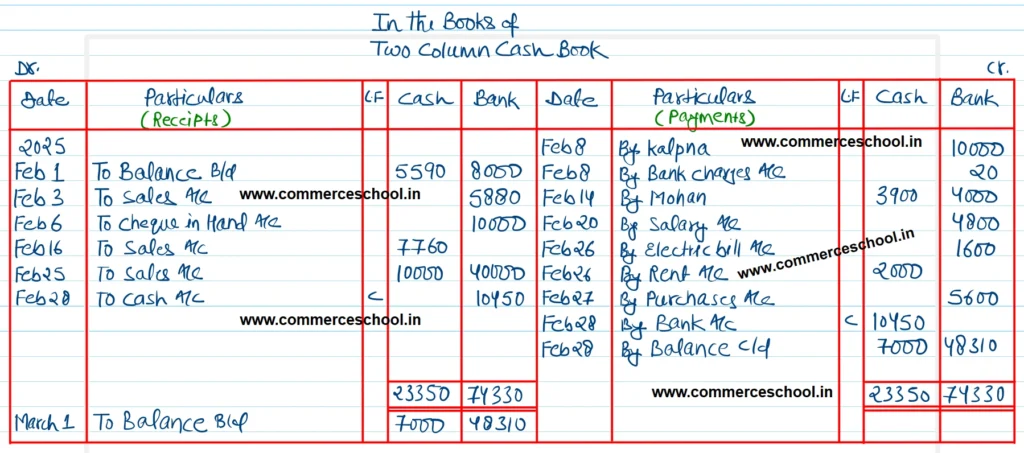 In the Books of
Two Column Cash Book
Dr. Cr.
Date Particulars LF Cash Bank Date Particulars LF Cash Bank
(Receipts) (Payments)
2025 Feb 8 By Kalpna www.commerceschool.in 10000
Feb 1 To Balance B/d 5590 8000 Feb 8 By Bank charges A/c 20
Feb 3 To Sales A/c www.commerceschool.in 5880 Feb 14 By Mohan 3900 4000
Feb 6 To cheque in Hand A/c 10000 Feb 20 By Salary A/c 4800
Feb 16 To Sales A/c 7760 Feb 26 By Electric bill A/c 1600
Feb 25 To Sales A/c 10000 40000 Feb 26 By Rent A/c www.commerceschool.in 2000
Feb 28 To Cash A/c C 10450 Feb 27 By Purchases A/c 5600
www.commerceschool.in Feb 28 By Bank A/c C 10450
Feb 28 By Balance c/d 7000 48310
23350 74330 www.commerceschool.in 23350 74330
March 1 To Balance B/d 7000 48310